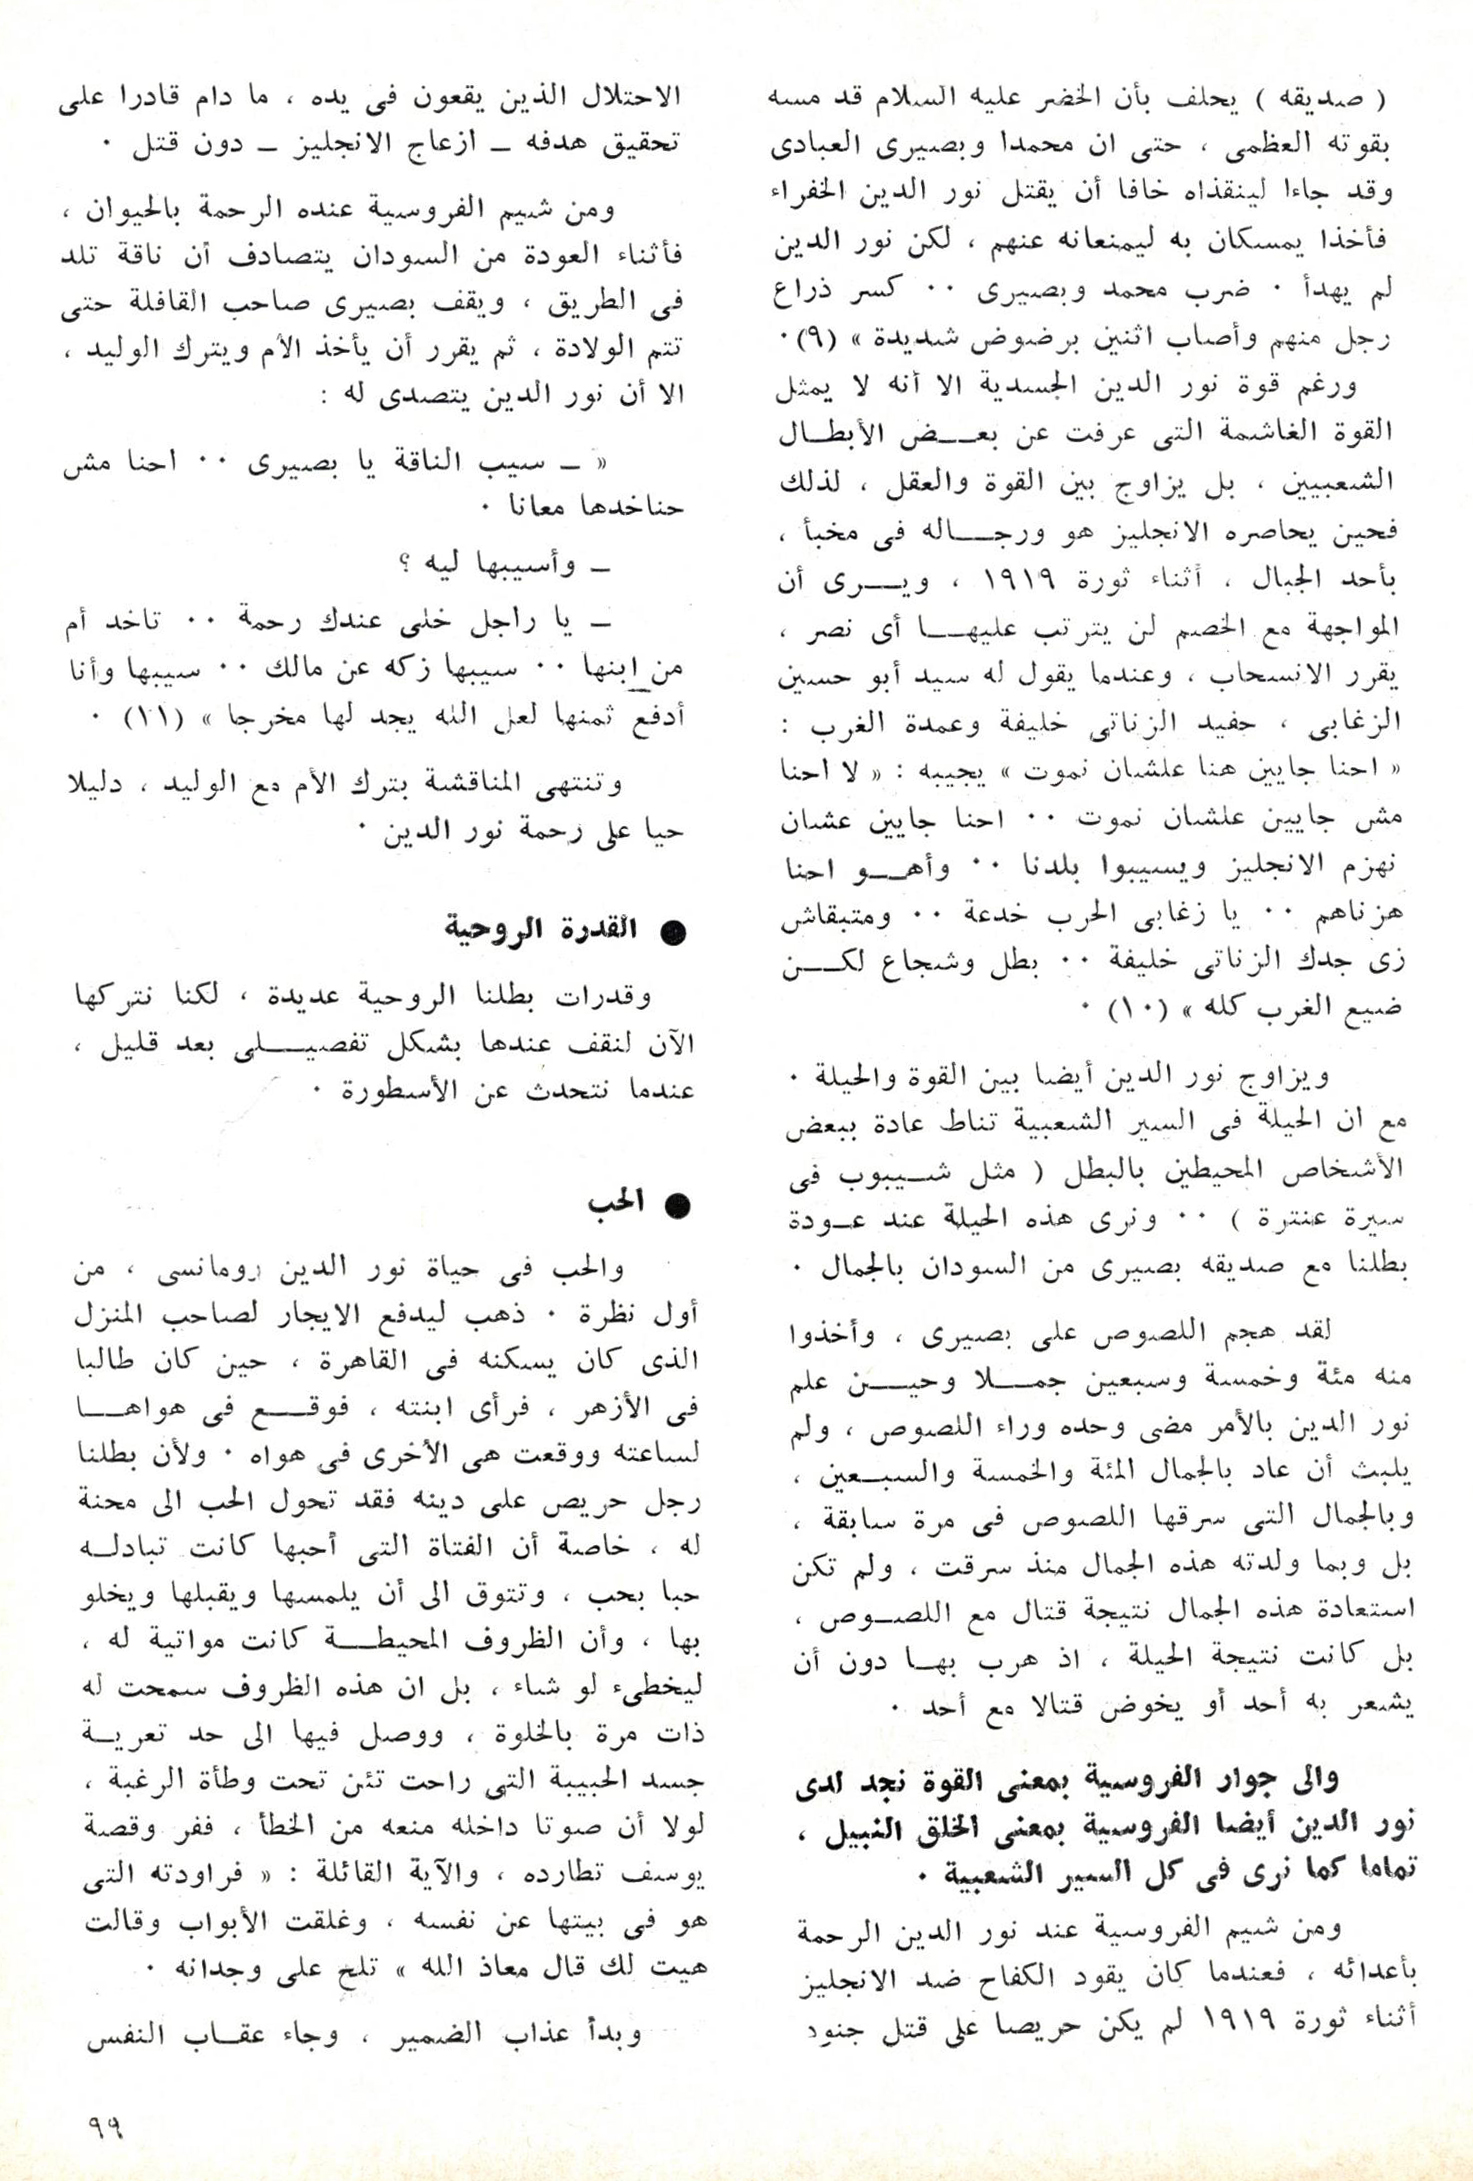 ( صديقه ) يحلف بأن الخضر عليه السلام قد مسه
بقوته العظمى ، حتى ان محمدا وبصيرى العبادى
وقد جاءا لينقذاه خافا أن يقتل نور الدين الخفراء
فأخذا يمسكان به ليمنعانه عنهم ، لكن نور الدين
لم يهدأ ٠ ضرب محمد وبصيرى ٠٠ كسر ذراع
رجل منهم وأصاب اثنين برضوض شديدة » (٩)٠
ورغم قوة نور الدين الجسدية الا أنه لا يمثل
القوة الغاشمة التى عرفت عن بعـــض الأبطـال
الشعبيين ، بل يزاوج بين القوة والعقل ، لذلك
فحين يحاصره الانجليز هو ورجـــاله فى مخبأ ،
بأحد الجبال ، أثناء ثورة ١٩١٩ ، ويـــرى أن
المواجهة مع الخصم لن يترتب عليهـــا أى نصر ،
يقرر الانسحاب ، وعندما يقول له سيد أبو حسين
الزغابى ، حفيد الزناتى خليفة وعمدة الغرب :
« احنا جايين هنا علشان نموت » يجيبه : « لا احنا
مش جايين علشان نموت ٠٠ احنا جايين عشان
نهزم الانجليز ويسيبوا بلدنا ٠٠ وأهـــو احنا
هزناهم ٠٠ يا زغابى الحرب خدعة ٠٠ ومتبقاش
زى جدك الزناتى خليفة ٠٠ بطل وشجاع لكـــن
ضيع الغرب كله » (١٠) ٠
ويزاوج نور الدين أيضا بين القوة والحيلة ٠
مع ان الحيلة فى السير الشعبية تناط عادة ببعض
الأشخاص المحيطين بالبطل ( مثل شـــيبوب فى
سيرة عنترة ) ٠٠ ونرى هذه الحيلة عند عـودة
بطلنا مع صديقه بصيرى من السودان بالجمال ٠
لقد هجم اللصوص على بصيرى ، وأخذوا
منه مئة وخمسة وسبعين جمـــلا وحيـــن علم
نور الدين بالأمر مضى وحده وراء اللصوص ، ولم
يلبث أن عاد بالجمال المئة والخمسة والسبـعين ،
وبالجمال التى سرقها اللصوص فى مرة سابقة ،
بل وبما ولدته هذه الجمال منذ سرقت ، ولم تكن
استعادة هذه الجمال نتيجة قتال مع اللصـوص ،
بل كانت نتيجة الحيلة ، اذ هرب بهـا دون أن
يشعر به أحد أو يخوض قتالا مع أحد ٠
والى جوار الفروسية بمعنى القوة نجد لدى
نور الدين أيضا الفروسية بمعنى الخلق النبيل ،
تماما كما نرى فى كل السير الشعبية ٠
ومن شيم الفروسية عند نور الدين الرحمة
بأعدائه ، فعندما كان يقود الكفاح ضد الانجليز
أثناء ثورة ١٩١٩ لم يكن حريصا على قتل جنود
الاحتلال الذين يقعون فى يده ، ما دام قادرا على
تحقيق هدفه ــ ازعاج الانجليز ــ دون قتل ٠
ومن شيم الفروسية عنده الرحمة بالحيوان ،
فأثناء العودة من السودان يتصادف أن ناقة تلد
فى الطريق ، ويقف بصيرى صاحب القافلة حتى
تتم الولادة ، ثم يقرر أن يأخذ الأم ويترك الوليد ،
الا أن نور الدين يتصدى له :
« ــ سيب الناقة يا بصيرى ٠٠ احنا مش
حناخدها معانا ٠
ــ وأسيبها ليه ؟
ــ يا راجل خلى عندك رحمة ٠٠ تاخد أم
من ابنها ٠٠ سيبها زكه عن مالك ٠٠ سيبها وأنا
أدفع ثمنها لعل الله يجد لها مخرجا » (١١) ٠
وتنتهى المناقشة بترك الأم مع الوليد ، دليلا
حيا على رحمة نور الدين ٠
● القدرة الروحية
وقدرات بطلنا الروحية عديدة ، لكنا نتركها
الآن لنقف عندها بشكل تفصيـــلى بعد قليل ،
عندما نتحدث عن الأسطورة ٠
● الحب
والحب فى حياة نور الدين رومانسى ، من
أول نظرة ٠ ذهب ليدفع الايجار لصاحب المنزل
الذى كان يسكنه فى القاهرة ، حين كان طالبا
فى الأزهر ، فرأى ابنته ، فوقـــع فى هواهـــا
لساعته ووقعت هى الأخرى فى هواه ٠ ولأن بطلنا
رجل حريص على دينه فقد تحول الحب الى محنة
له ، خاصة أن الفتاة التى أحبها كانت تبادلـه
حبا بحب ، وتتوق الى أن يلمسها ويقبلها ويخلو
بها ، وأن الظروف المحيطـــة كانت مواتية له ،
ليخطىء لو شاء ، بل ان هذه الظروف سمحت له
ذات مرة بالخلوة ، ووصل فيها الى حد تعريـة
جسد الحبيبة التى راحت تئن تحت وطأة الرغبة ،
لولا أن صوتا داخله منعه من الخطأ ، ففر وقصة
يوسف تطارده ، والآية القائلة : « فراودته التى
هو فى بيتها عن نفسه ، وغلقت الأبواب وقالت
هيت لك قال معاذ الله » تلح على وجدانه ٠
وبدأ عذاب الضمير ، وجاء عقـاب النفس
٩٩